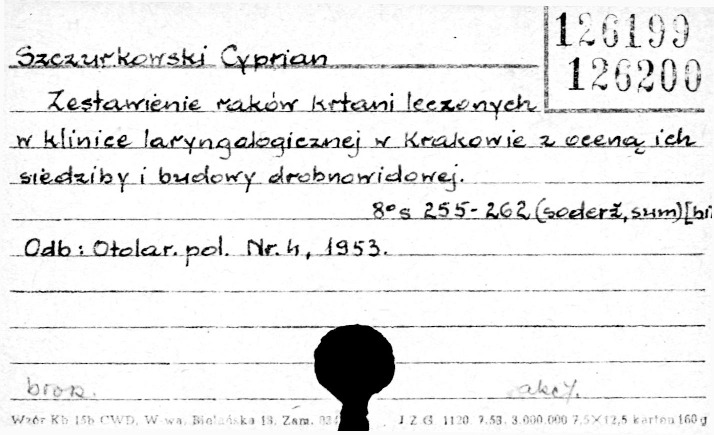 126199
126200
Szczurkowski Cyprian
Zestawienie raków krtani leczonych
w klinice laryngologicznej w Krakowie z oceną ich
siedziby i budowy drobnowidowej.
8° s 255-262 (soderž, sum) [bi
Odb: Otolar. pol. Nr. 4, 1953.
brosz. akcy.
Wzór Kb 15b CWD, W-wa, Bielańska 18, Zam. J Z G 1120 7.53. 3.000.000 7,5×12,5 karton 160 g